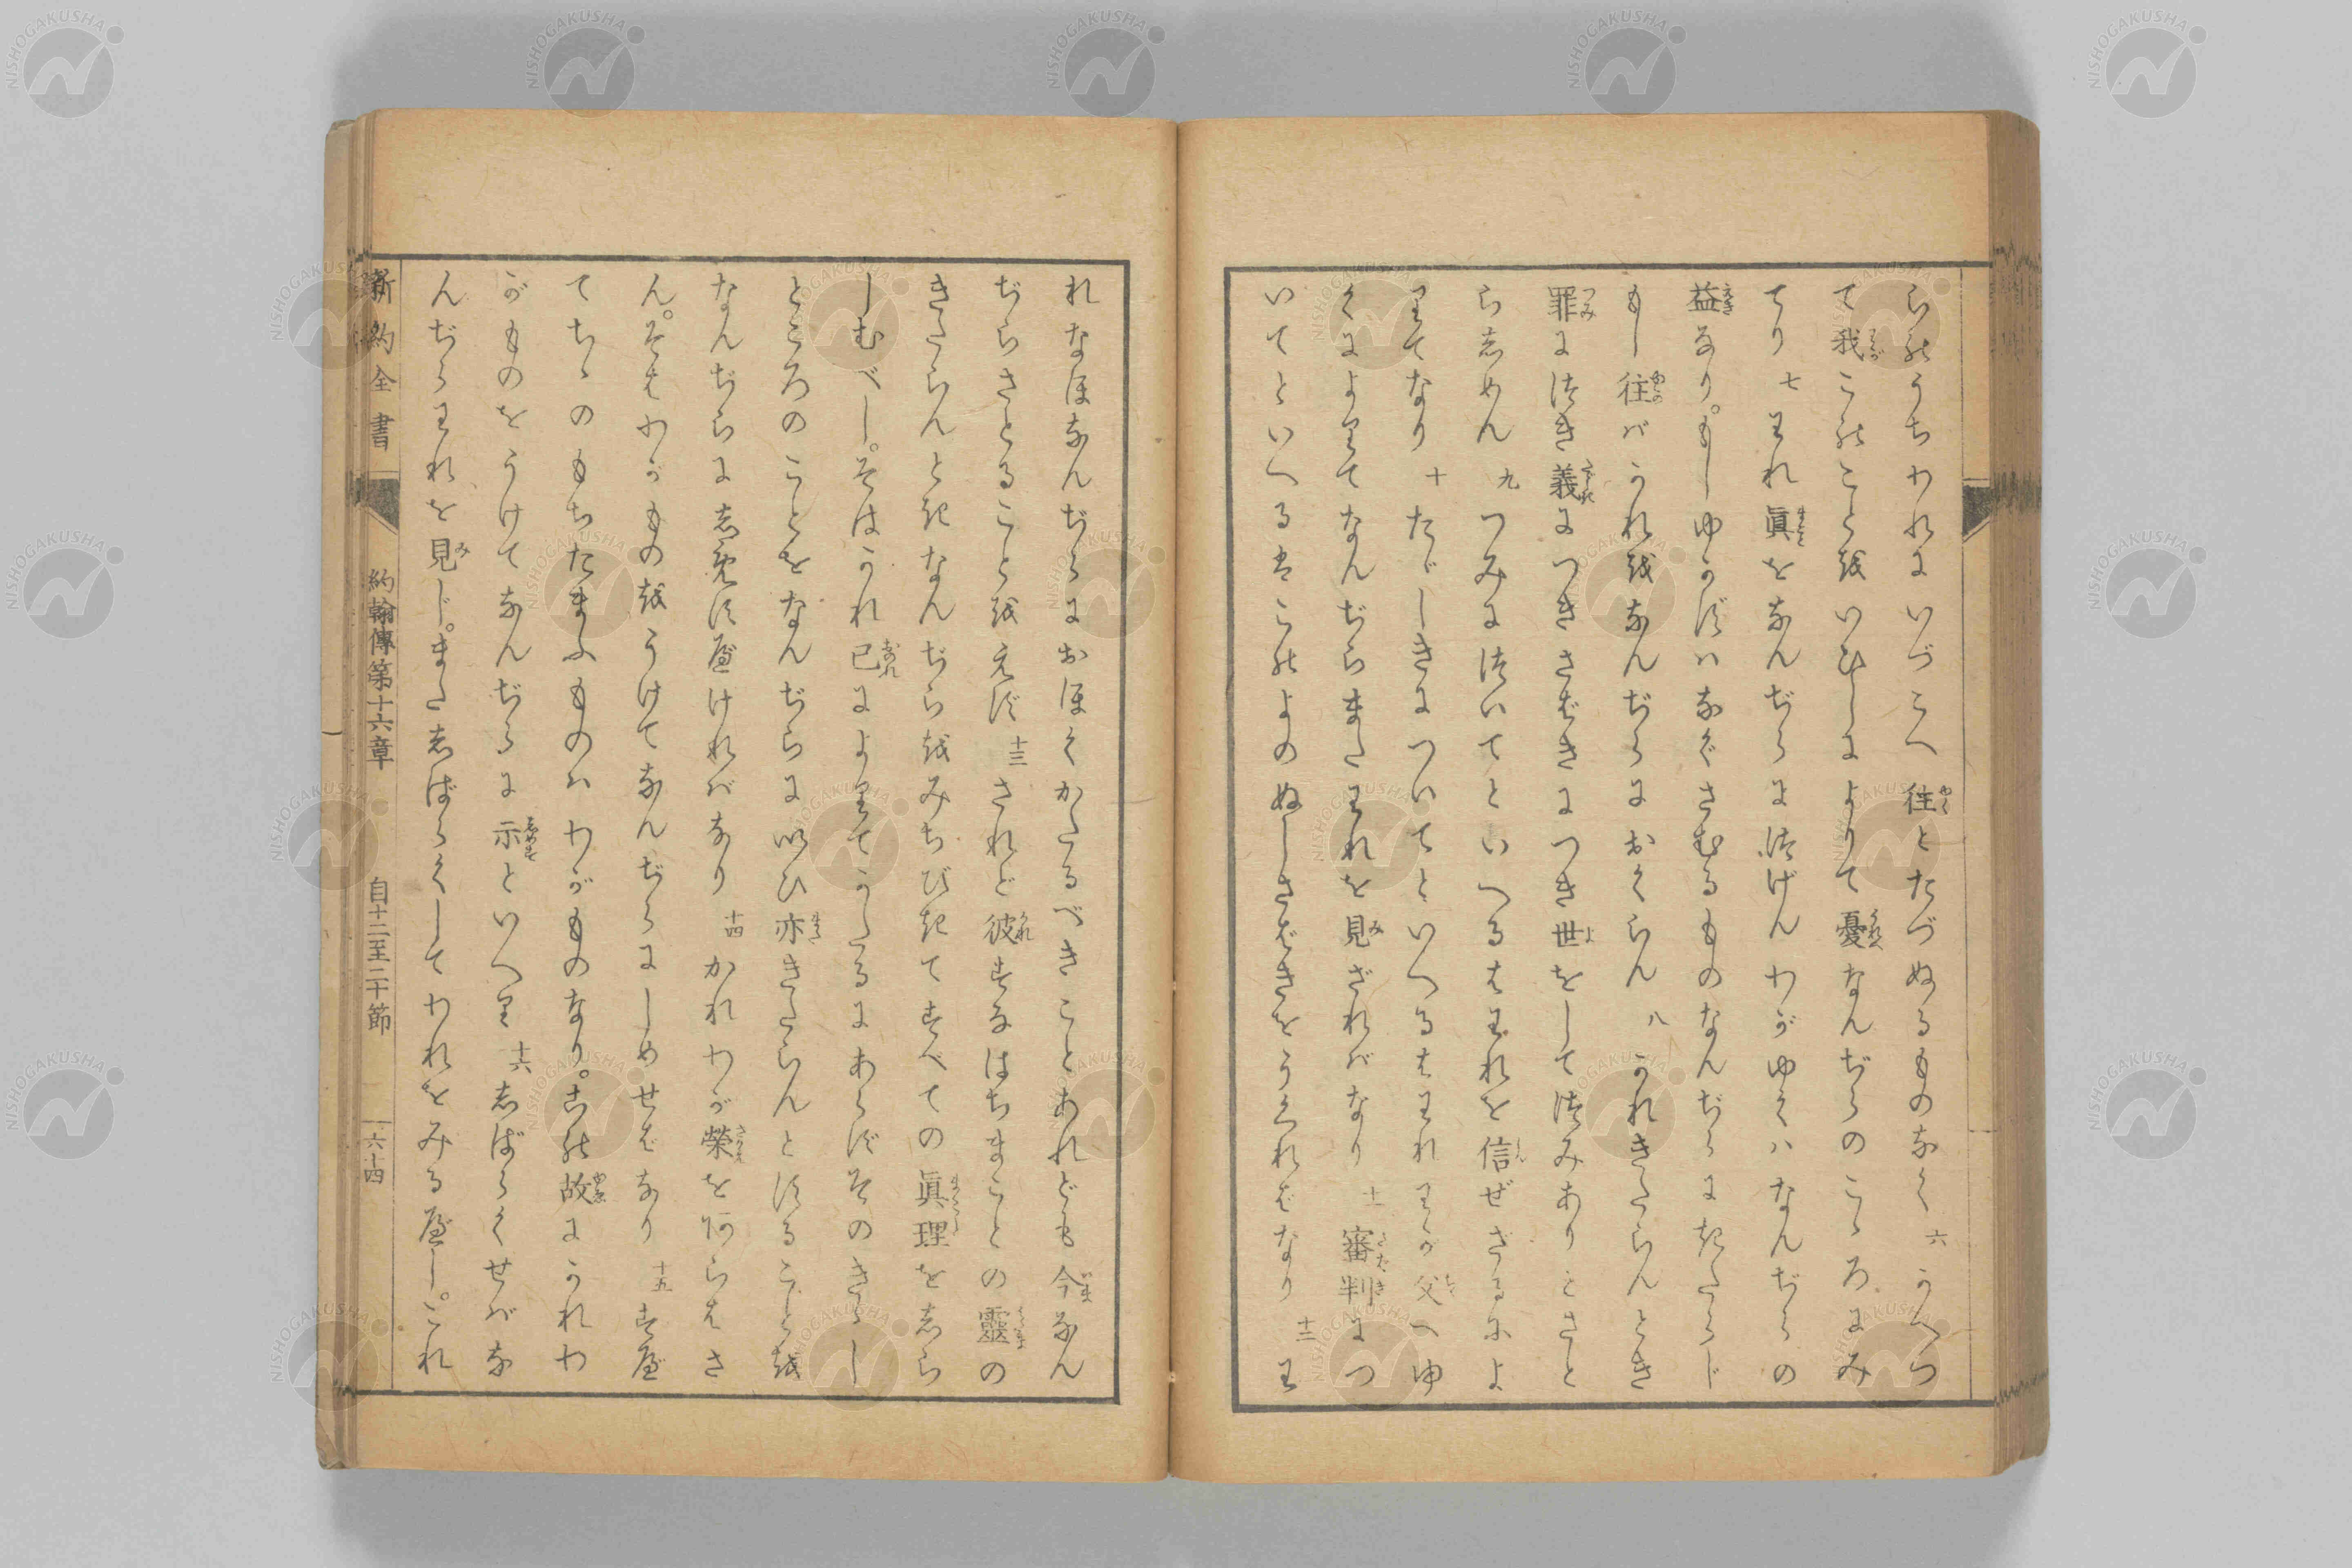 らのうちわれにいづこへ往とたづぬるものなく 六 かへつ
て我このことをいひしによりて憂なんぢらのこゝろにみ
てり 七 われ眞をなんぢらに つげんわがゆくハなんぢらの
益なり。もしゆかずハなぐさむるものなんぢらにきたらじ
もし往バかれをなんぢらにおくらん 八 かれきたらんとき
罪につき義につきさばきにつき世をしてつみありとさと
らしめん 九 つみについてといへるはわれを信ぜざるによ
りてなり 十 たゞしきについてといへるはわれわが父へゆ
くによりてなんぢらまたわれを見ざれバなり 十一 審判につ
いてといへるはこのよのぬしさばきをうくればなり 十二 わ
れなほなんぢらにおほくかたるべきことあれども今なん
ぢらさとることをえず 十三 されど彼すなはちまことの靈の
きたらんときなんぢらをみちびきてすべての眞理をしら
しむべし。そはかれ己によりてかたるにあらずそのきゝし
ところのことをなんぢらにいひ亦きたらんとすることを
なんぢらにしめすべけれバなり 十四 かれわが榮をあらはさ
ん。そはわがものをうけてなんぢらにしめせばなり 十五 すべ
てちゝのもちたまふものハわがものなり。この故にかれわ
がものをうけてなんぢらに示といへり 十六 しばらくせバな
んぢらわれを見じ。またしばらくしてわれをみるべし。これ
新約全書 約翰傳第十六章 自十二至二十節 一六四
NISHOGAKUSHA